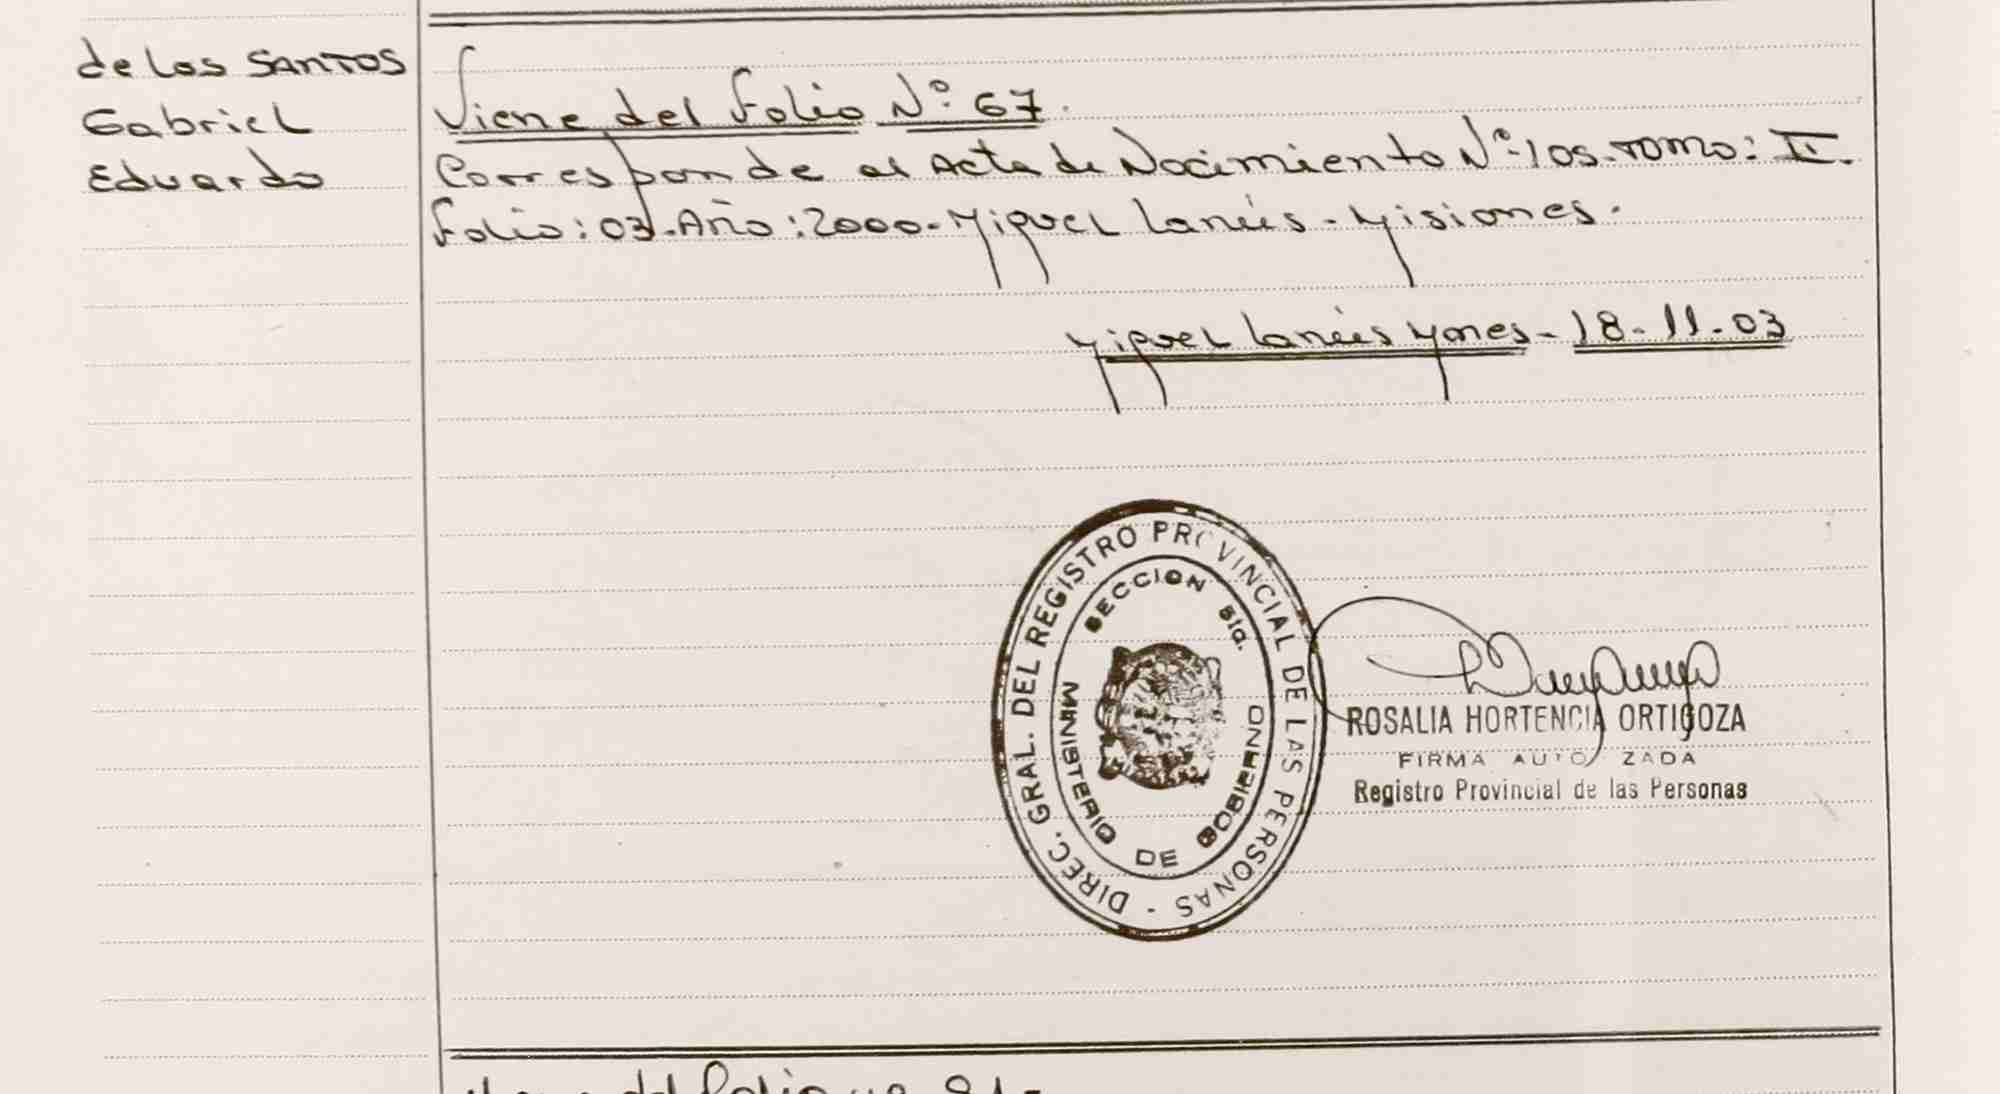 de los SANTOS
Gabriel
Eduardo
Viene del folio Nº 67.
Corresponde al Acta de Nacimiento Nº 105. TOMO: II.
folio: 03. Año: 2000. Miguel Lanús - Misiones.
Miguel Lanús Mnes - 18-11-03
DIREC. GRAL. DEL REGISTRO PROVINCIAL DE LAS PERSONAS -
SECCION 5ta.
MINISTERIO DE GOBIERNO
ROSALIA HORTENCIA ORTIGOZA
FIRMA AUTO ZADA
Registro Provincial de las Personas
del folio